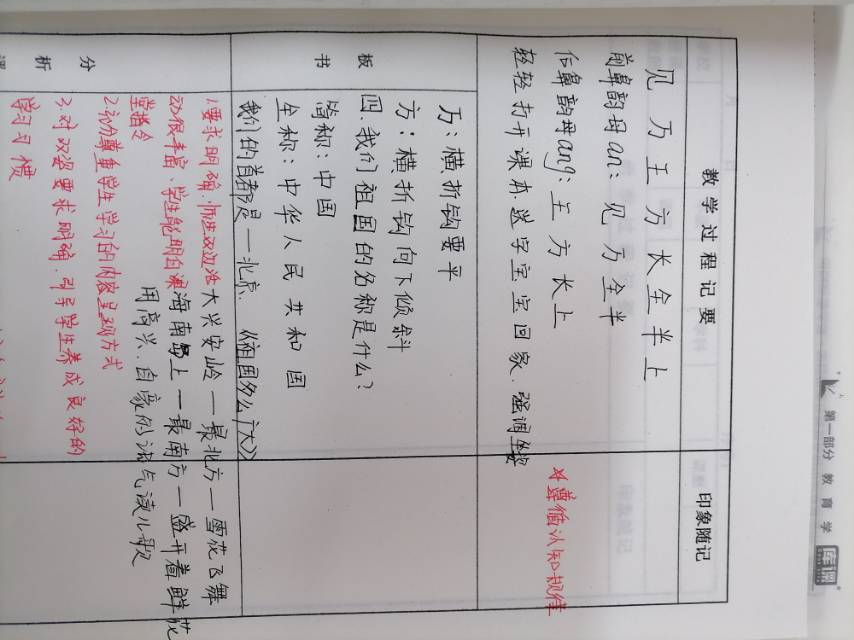 第一部分 教育学
库课
教学过程记要
印象随记
见 万 王 方 长 全 半 上
前鼻韵母an: 见 万 全 半
后鼻韵母ang: 王 方 长 上
轻轻打开课本.送字宝宝回家.强调坐姿
*遵循认知规律
万:横折钩要平
方:横折钩向下倾斜
四.我们祖国的名称是什么?
简称:中国
全称:中华人民共和国
我们的首都是—北京.《祖国多么广大》
板书
大兴安岭—最北方—雪花飞舞
海南岛上—最南方—盛开着鲜花
用高兴.自豪的语气读儿歌
分析
1.要求明确.师生双边活
动很丰富.学生能明白课
堂指令
2.充分尊重学生学习的内容呈现方式
3.对双姿要求明确.引导学生养成良好的
学习习惯